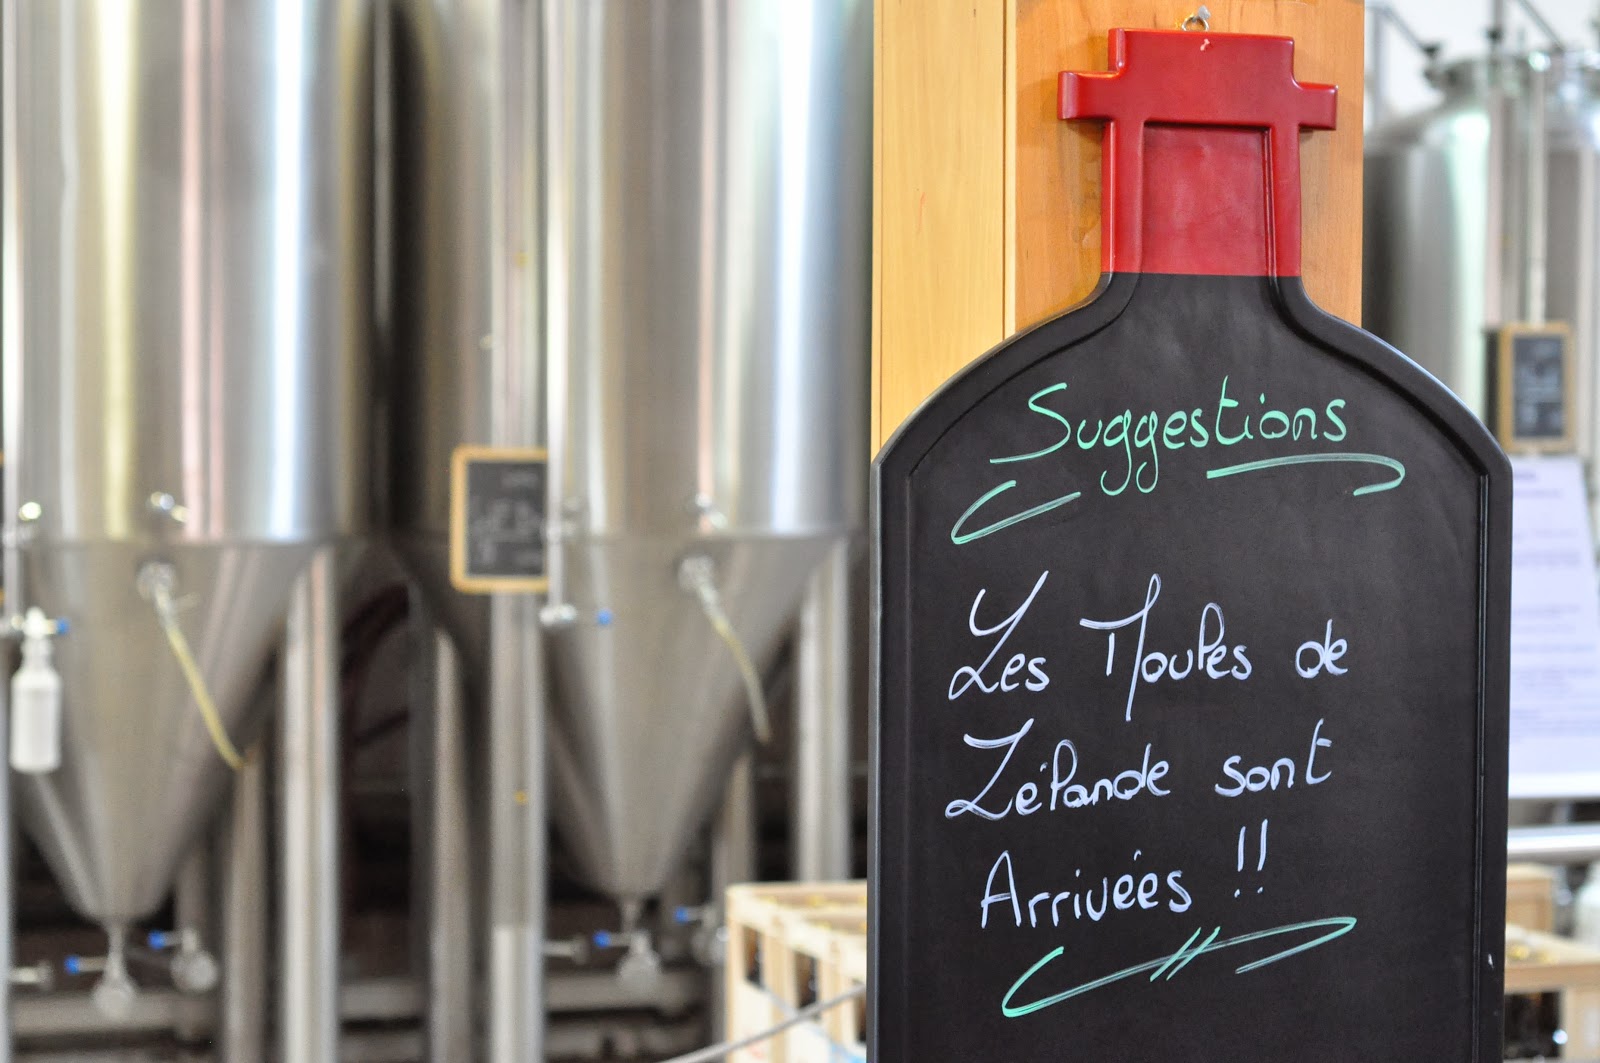 Suggestions
Les Moules de
Zélande sont
Arrivées !!